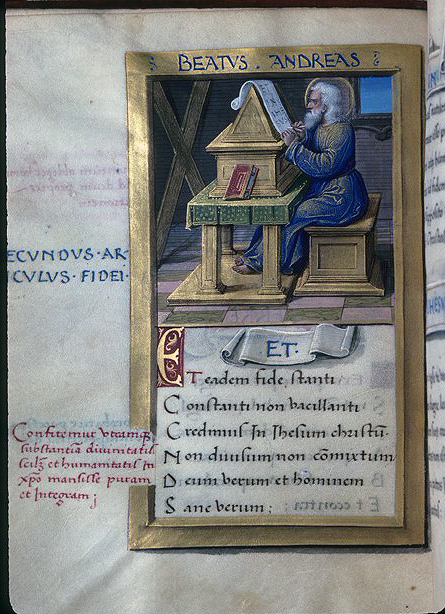 BEATVS. ANDREAS
ECVNDVS·AR
CVLVS·FIDEI·
ET·
ET eadem fide, stanti
Constanti non vacillanti
Credimus In Ihesum christū·
Non diuisum, non cōmixtum
Deum verum et hominem
Sane verum;
Confitemur vtramqȝ
substantiā diuinitatis
et humanitatis In
xpo mansisse puram
et Integram;